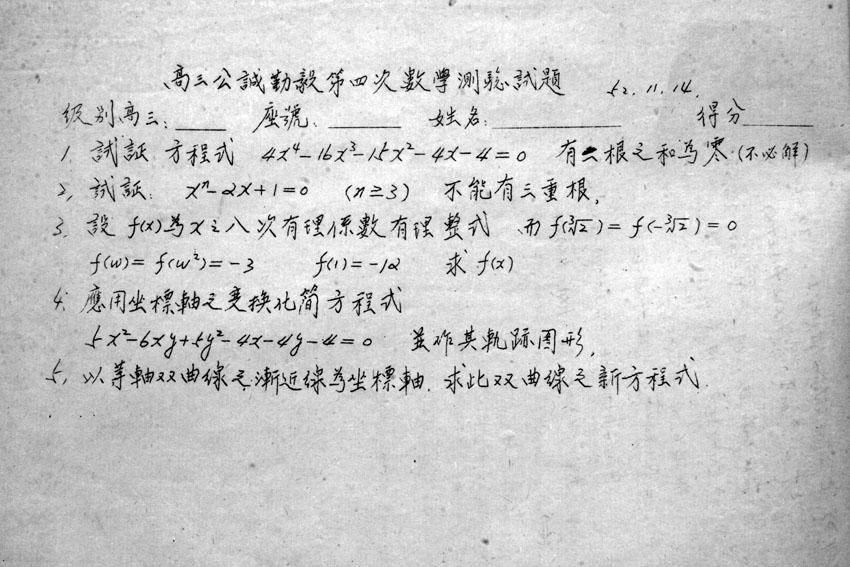 高三公誠勤毅第四次數學測驗試題 52.11.14.
級別高三:____ 座號:______ 姓名:__________ 得分______
1. 試証 方程式 4x⁴-16x³-15x²-4x-4=0 有二根之和為零(不必解)
2. 試証: xⁿ-2x+1=0 (n≥3) 不能有三重根.
3. 設 f(x)為x之八次有理係數有理整式 而f(∛2)=f(-∛2)=0
f(w)=f(w²)=-3 f(1)=-12 求 f(x)
4. 應用坐標軸之变换化简方程式
5x²-6xy+5y²-4x-4y-4=0 並作其軌跡图形.
5. 以等軸双曲線之漸近線為坐標軸. 求此双曲線之新方程式.